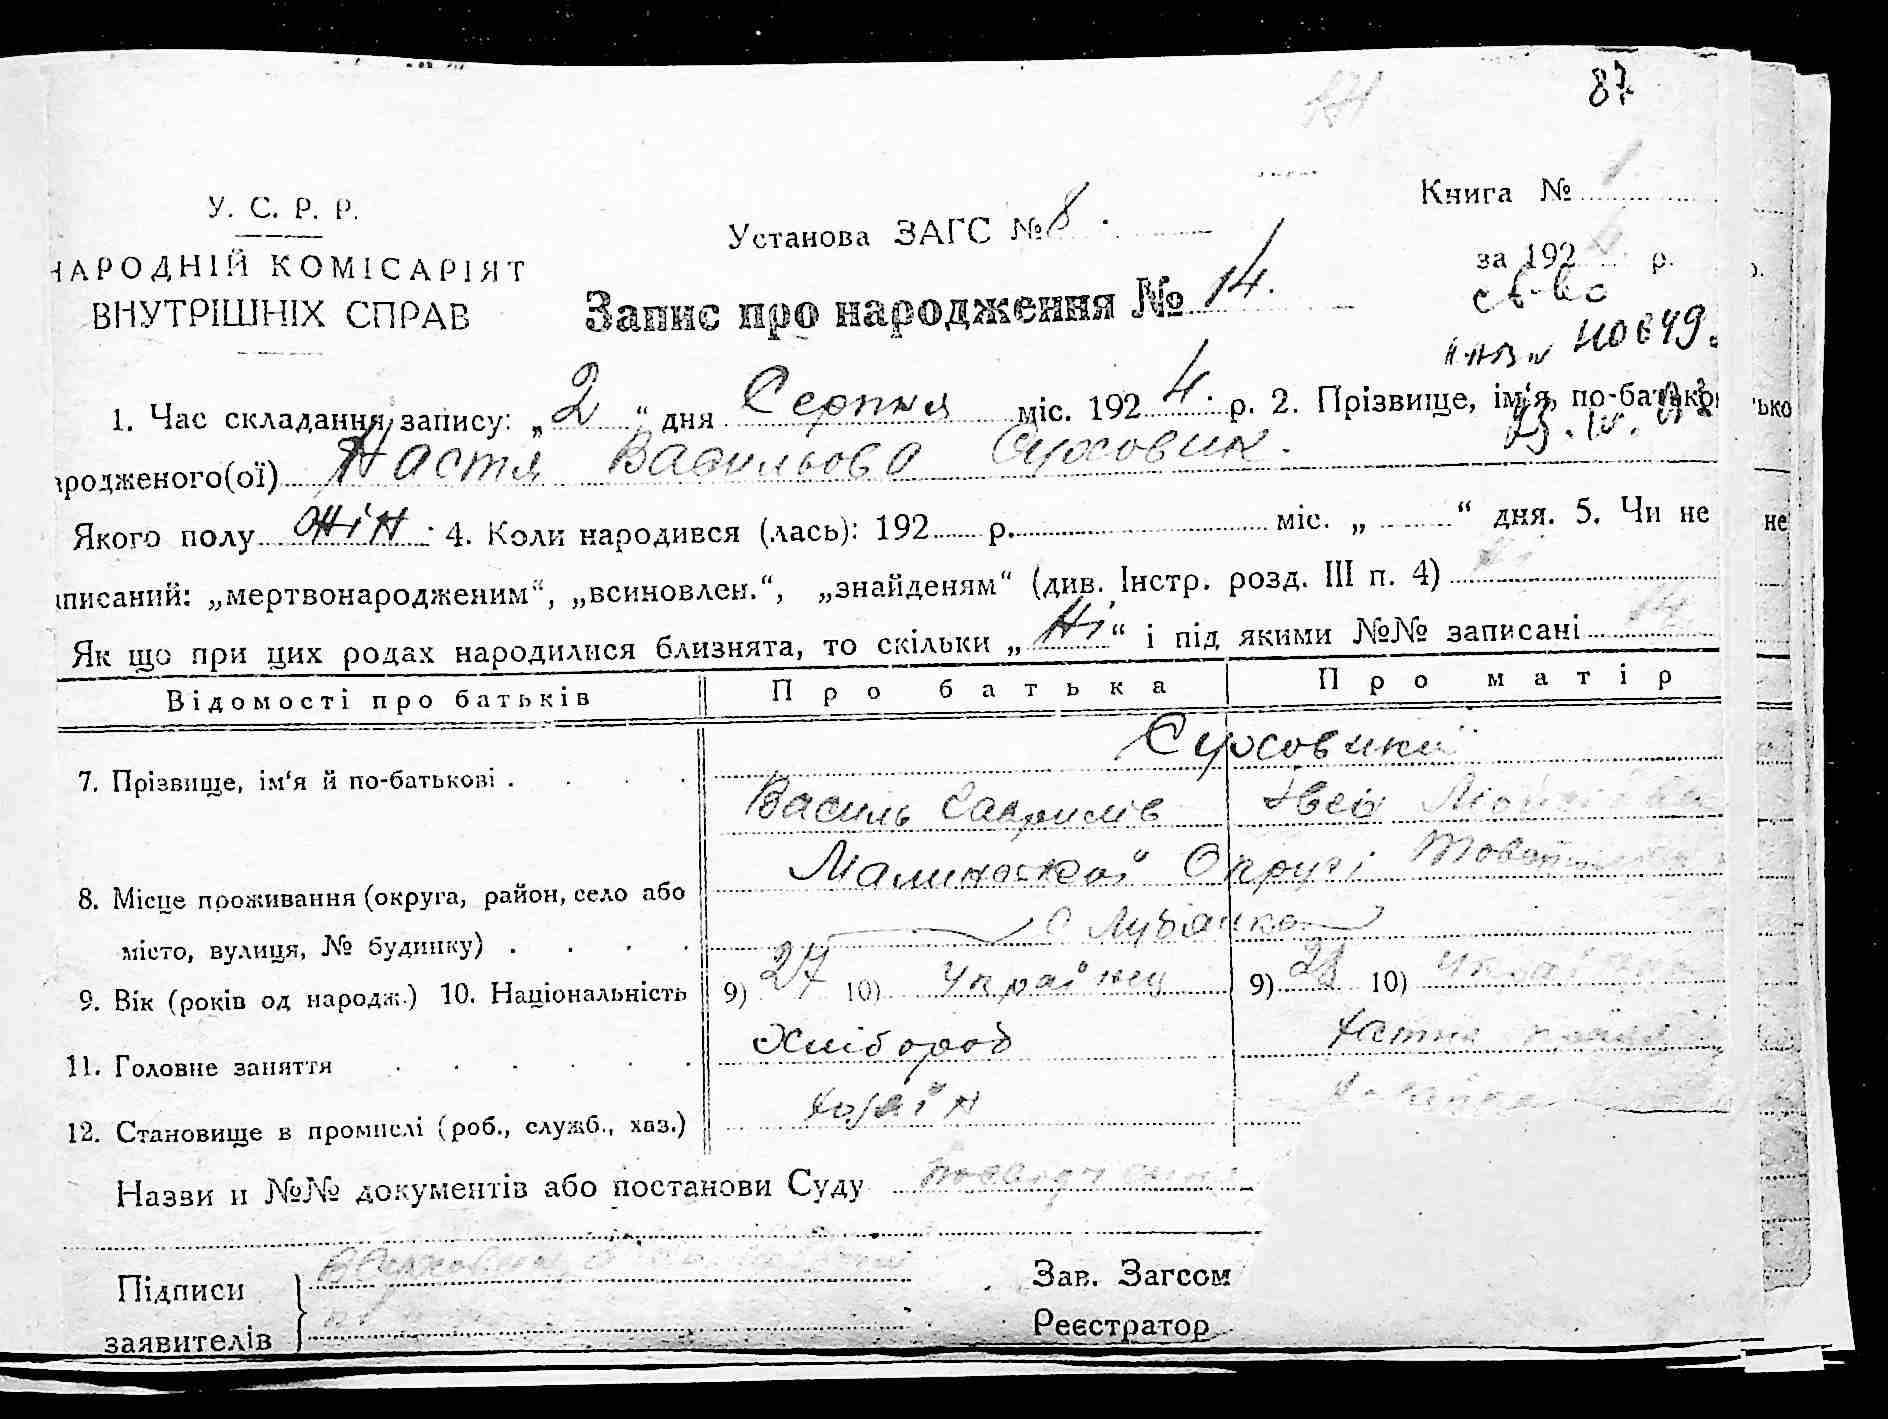 87
У. С. Р. Р.
НАРОДНІЙ КОМІСАРІЯТ
ВНУТРІШНІХ СПРАВ
Установа ЗАГС № 8.
Запис про народження № 14.
Книга № 1
за 192 р.
св-во
110649.
1. Час складання запису: „ 2 “ дня Серпня міс. 192 4. р. 2. Прізвище, ім‘я, по-батькові
ародженого(ої) Настя Васильова Суховик.
Якого полу жін. 4. Коли народився (лась): 192 р. міс. „ “ дня. 5. Чи не
писаний: „мертвонародженим“, „всиновлен.“, „знайденям“ (див. Інстр. розд. III п. 4) Ні
Як що при цих родах народилися близнята, то скільки „ Ні “ і під якими №№ записані 14
Відомості про батьків Про батька Про матір
Суховики
7. Прізвище, ім‘я й по-батькові .
Василь Гаврилів
Малинської Округі
8. Місце проживання (округа, район, село або
місто, вулиця, № будинку) .
с Лубянка
9. Вік (років од народж.) 10. Національність 9) 27 10) Українец 9) 10)
11. Головне заняття Хлібороб
12. Становище в промислі (роб., служб., хаз.) хазаїн
Назви и №№ документів або постанови Суду
Підписи
заявителів
Зав. Загсом
Реєстратор
ько
не